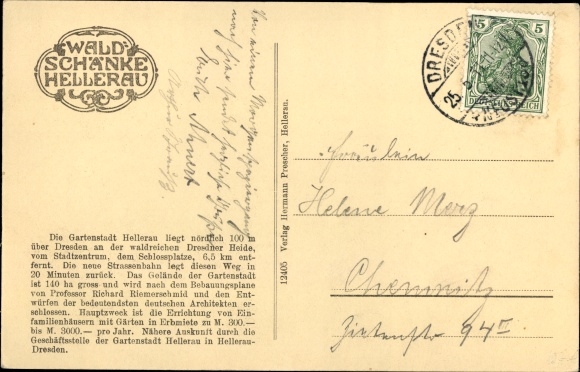 WALD-
SCHÄNKE
HELLERAU
Von einem Morgenspaziergang
nach hier sendet herzliche Grüße
Ahnert
Die Gartenstadt Hellerau liegt nördlich 100 m
über Dresden an der waldreichen Dresdner Heide,
vom Stadtzentrum, dem Schlossplatze, 6,5 km ent-
fernt. Die neue Strassenbahn legt diesen Weg in
20 Minuten zurück. Das Gelände der Gartenstadt
ist 140 ha gross und wird nach dem Bebauungsplane
von Professor Richard Riemerschmid und den Ent-
würfen der bedeutendsten deutschen Architekten er-
schlossen. Hauptzweck ist die Errichtung von Ein-
familienhäusern mit Gärten in Erbmiete zu M. 300.—
bis M. 3000.— pro Jahr. Nähere Auskunft durch die
Geschäftsstelle der Gartenstadt Hellerau in Hellerau-
Dresden.
12405 Verlag Hermann Proscher, Hellerau.
5 5
DEUTSCHES REICH
DRESDEN
25
Fräulein
Helene Merz
Chemnitz
Zietenstr 94 II